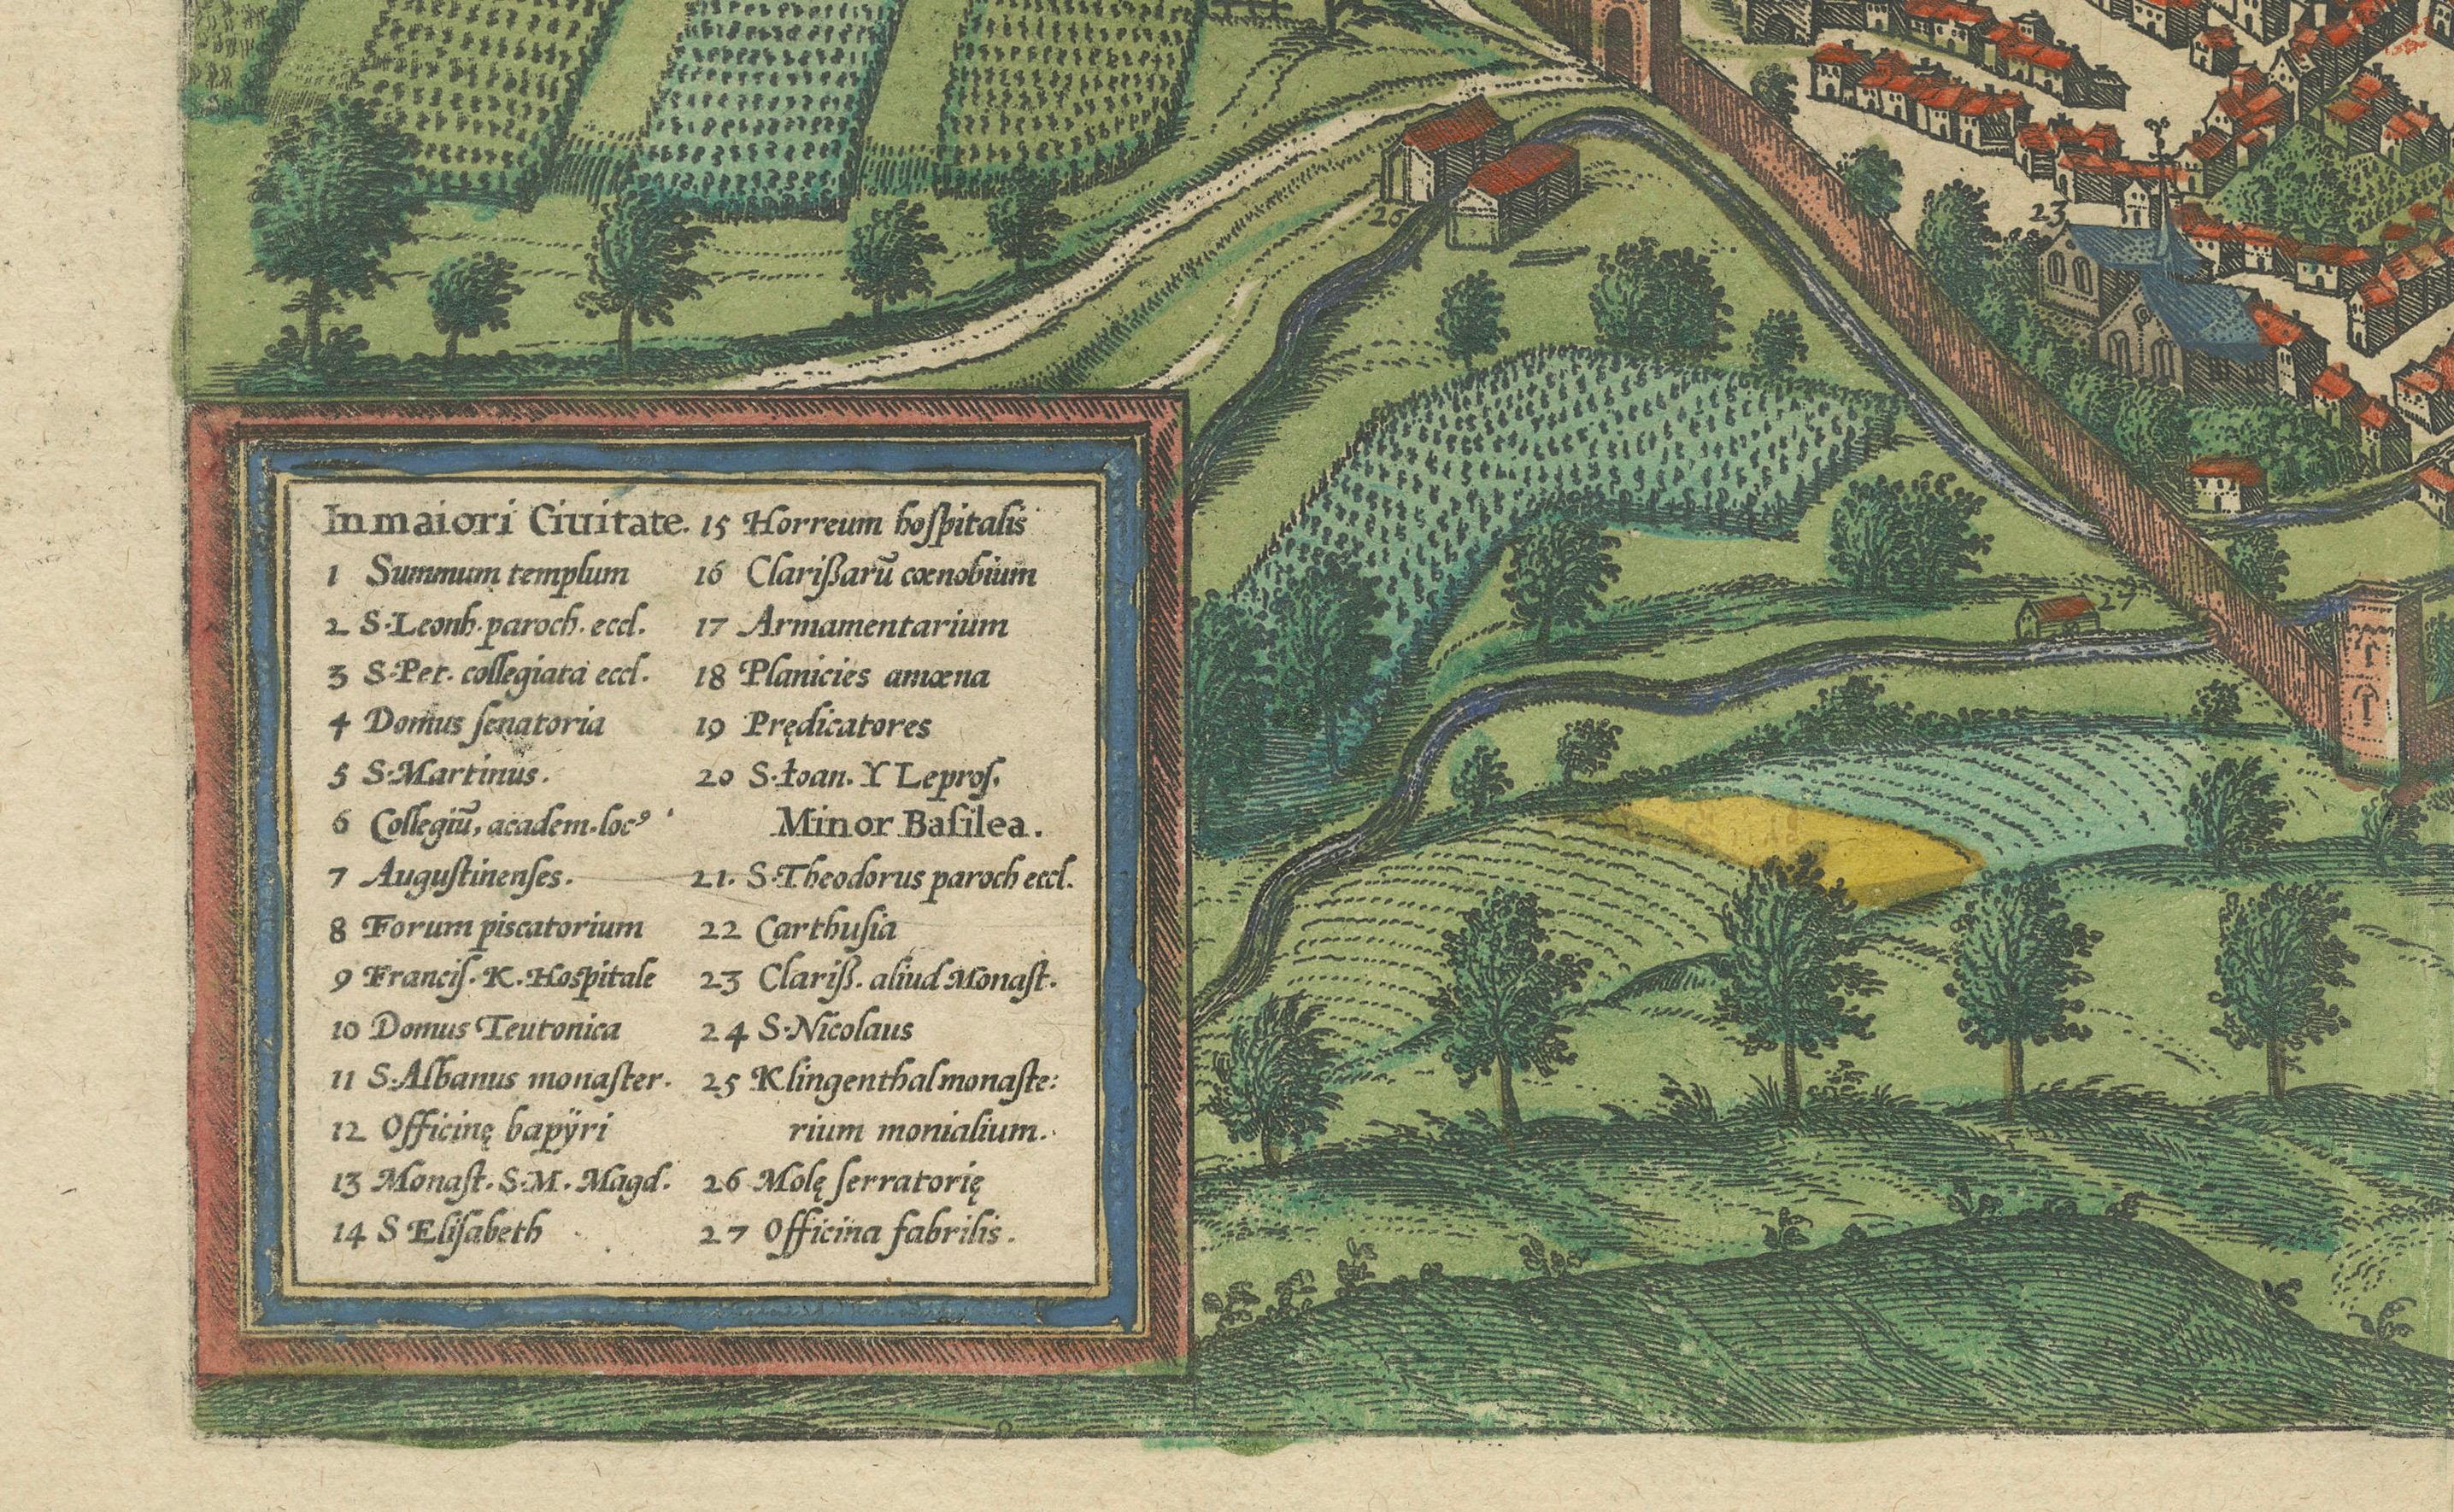 In maiori Ciuitate.
1 Summum templum
2 S. Leonh. paroch. eccl.
3 S. Pet. collegiata eccl.
4 Domus ſenatoria
5 S. Martinus.
6 Collegiū, academ. locꝰ
7 Auguſtinenſes.
8 Forum piscatorium
9 Franciſ. K. Hoſpitale
10 Domus Teutonica
11 S. Albanus monaſter.
12 Officinę bapÿri
13 Monaſt. S. M. Magd.
14 S Eliſabeth
15 Horreum hoſpitalis
16 Clarißarū cœnobium
17 Armamentarium
18 Planicies amœna
19 Prędicatores
20 S. Ioan. Y Leproſ.
Minor Baſilea.
21. S. Theodorus paroch eccl.
22 Carthuſia
23 Clariß. aliud Monaſt.
24 S. Nicolaus
25 Klingenthal monaſte:
rium monialium.
26 Molę ſerratorię
27 Officina fabrilis.
26
23
27